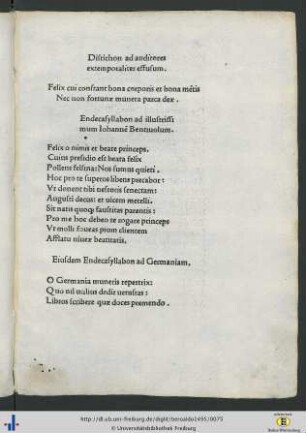 Distichon ad auditores
extemporaliter effusum.
Felix cui constant bona corporis et bona mētis
Nec non fortunę munera parca deę.
Endecasyllabon ad illustrissi
mum Iohannē Bentiuolum.
Felix o nimis et beate princeps,
Cuius presidio est beata felix
Pollens felsina: Nos sumus quieti.
Hoc pro te superos libens precabor:
Vt donent tibi nestoris senectam:
Augusti decus: et uicem metelli.
Sit natis quoqʒ faustitas parentis:
Pro me hoc debeo te rogare princeps
Vt molli foueas pium clientem
Afflatu niueę beatitatis.
Eiusdem Endecasyllabon ad Germaniam.
O Germania muneris repertrix:
Quo nil utilius dedit uetustas:
Libros scribere quę doces premendo.
http://dl.ub.uni-freiburg.de/diglit/beroaldo1495/0075
© Universitätsbibliothek Freiburg